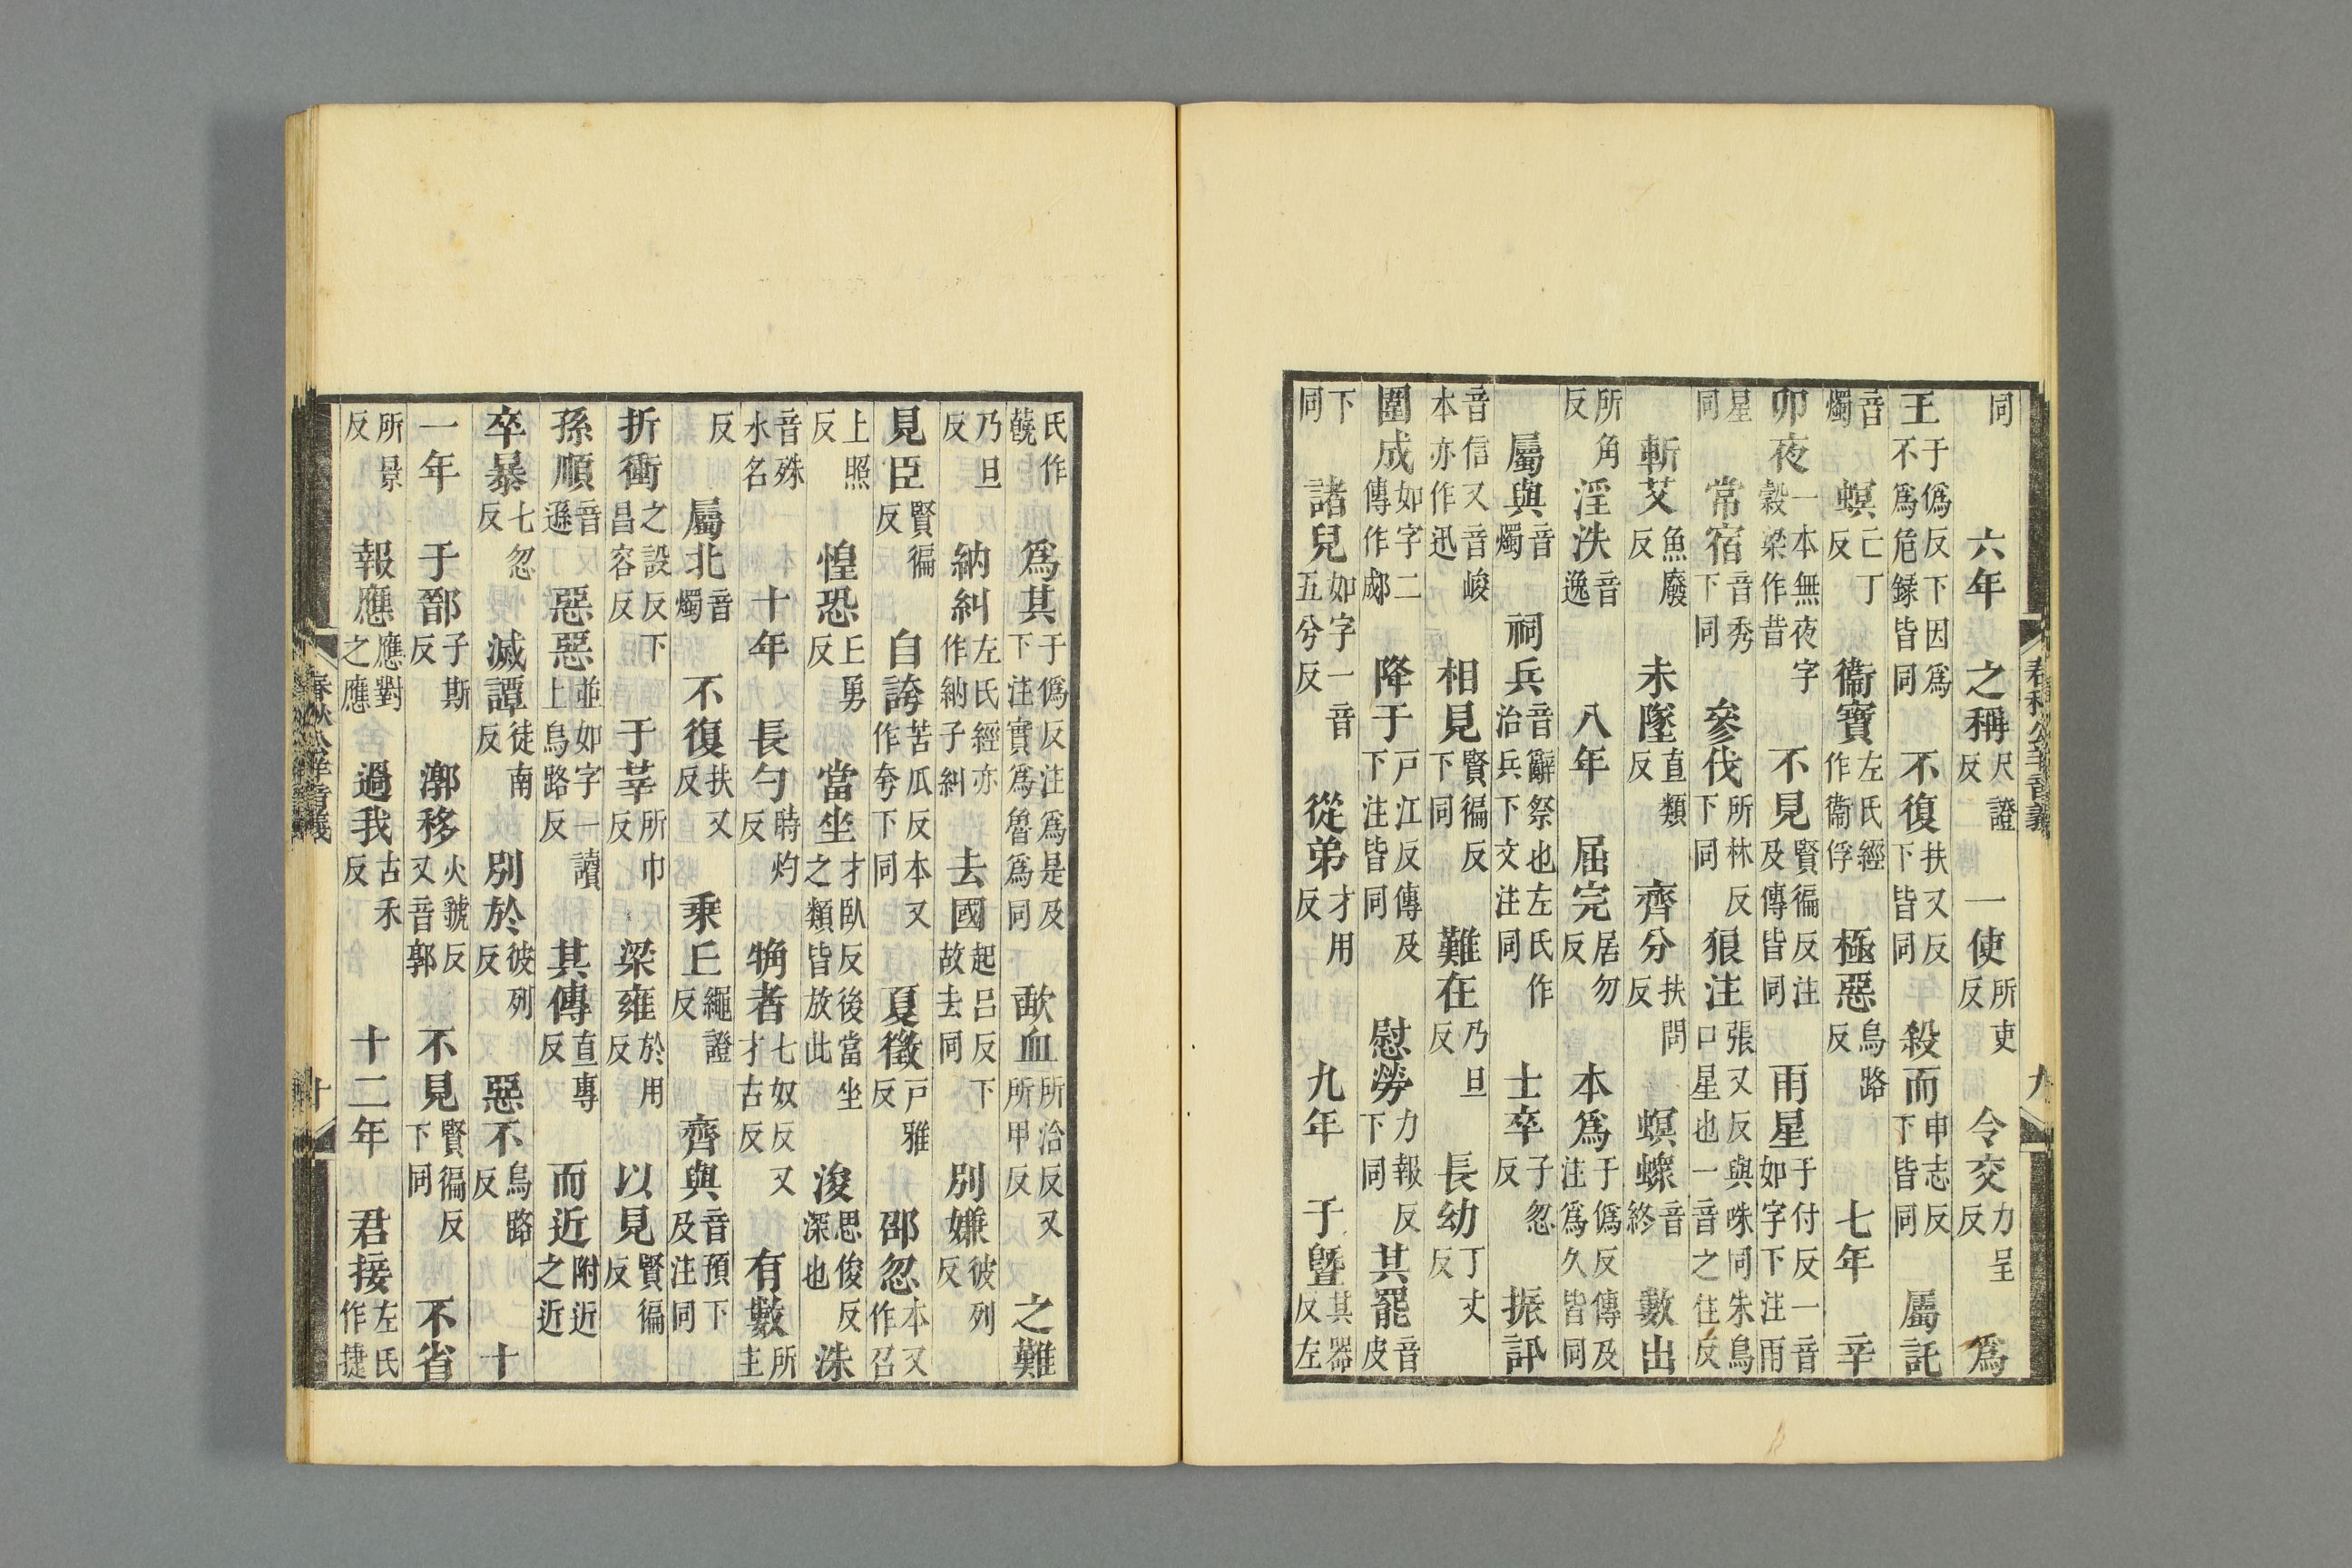 同 六年 之稱尺證反 一使所吏反 令交力呈反 爲
王于僞反下因爲不爲危録皆同 不復扶又反下皆同 殺而申志反下皆同 屬託
音燭 螟亡丁反 衞寶左氏經作衞俘 極惡烏路反 七年 辛
卯夜一本無夜字穀梁作昔 不見賢徧反注及傳皆同 雨星于付反一音如字下注雨
星同 常宿音秀下同 參伐所林反下同 狼注張又反與咮同朱鳥口星也一音之住反
斬艾魚廢反 未墜直類反 齊分扶問反 螟螽音終 數出
所角反 淫泆音逸 八年 屈完居勿反 本爲于僞反傳及注爲久皆同
屬與音燭 祠兵音辭祭也左氏作治兵下文注同 士卒子忽反 振訊
音信又音峻本亦作迅 相見賢徧反下同 難在乃旦反 長幼丁丈反
圍成如字二傳作郕 降于戸江反傳及下注皆同 慰勞力報反下同 其罷音皮
下同 諸兒如字一音五兮反 從弟才用反 九年 子曁其器反左
春秋公羊音義 九
氏作蔇 爲其于僞反注爲是及下注實爲魯爲同 歃血所洽反又所甲反 之難
乃旦反 納糾左氏經亦作納子糾 去國起吕反下故去同 別嫌彼列反
見臣賢徧反 自誇苦瓜反本又作夸下同 夏徵戸雅反 邵忽本又作召
上照反 惶恐丘勇反 當坐才臥反後當坐之類皆放此 浚思俊反深也 洙
音殊水名 十年 長勺時灼反 觕者七奴反又才古反 有數所主
反 屬北音燭 不復扶又反 乗丘繩證反 齊與音預下及注同
折衝之設反下昌容反 于莘所巾反 梁雍於用反 以見賢徧反
孫順音遜 惡惡並如字一讀上烏路反 其傳直專反 而近附近之近
卒暴七忽反 滅譚徒南反 別於彼列反 惡不烏路反 十
一年 于鄑子斯反 漷移火虢反又音郭 不見賢徧反下同 不省
所景反 報應應對之應 過我古禾反 十二年 君接左氏作捷
春秋公羊音義 十